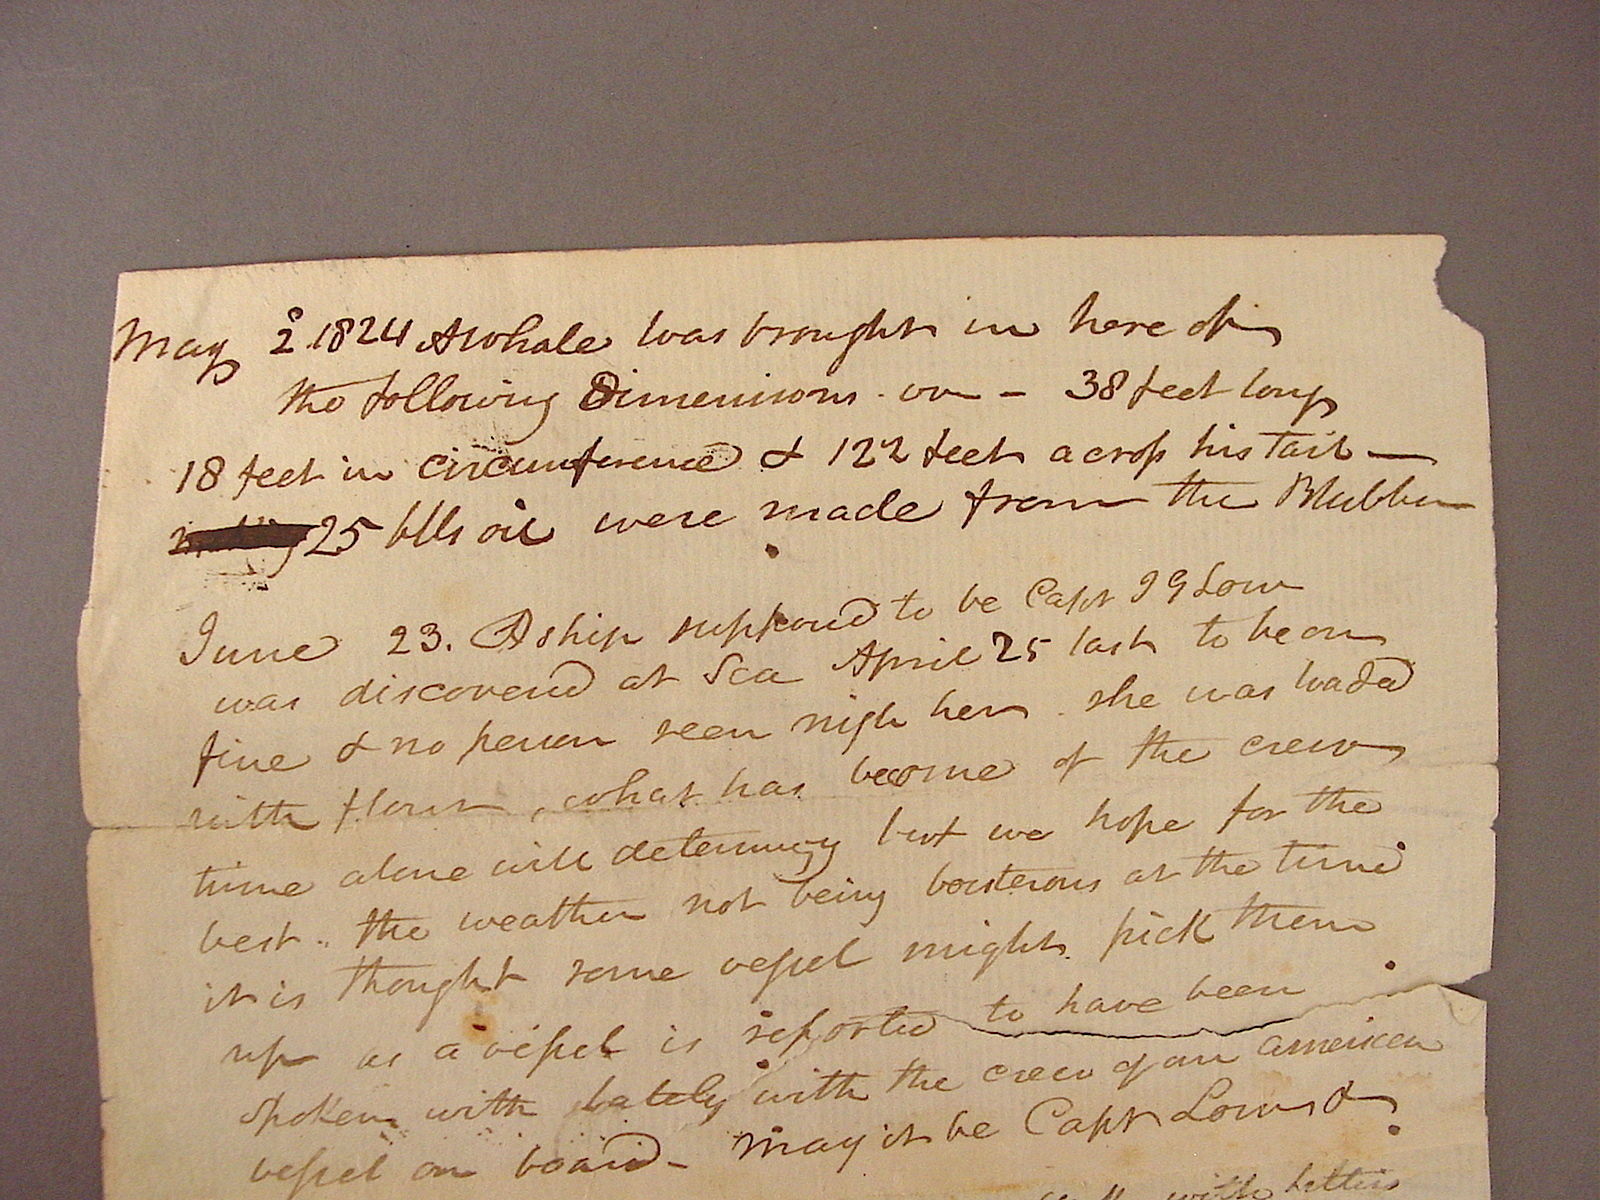 May 2d 1824 A whale was brought in here of
the following Dimensions. on - 38 feet long
18 feet in circumference & 12½ feet across his tail —
25 blls oil were made from the Blubber
June 23. A ship supposed to be Capt I G Low
was discovered at Sea April 25 last to be on
fire & no person seen nigh her. she was loaded
with flour, what has become of the crew
time alone will determing but we hope for the
best.. the weather not being boisterous at the time
it is thought some vessel might pick them
up as a vessel is reported to have been
spoken with lately with the crew of an american
vessel on board - May it be Capt Low &
with letters